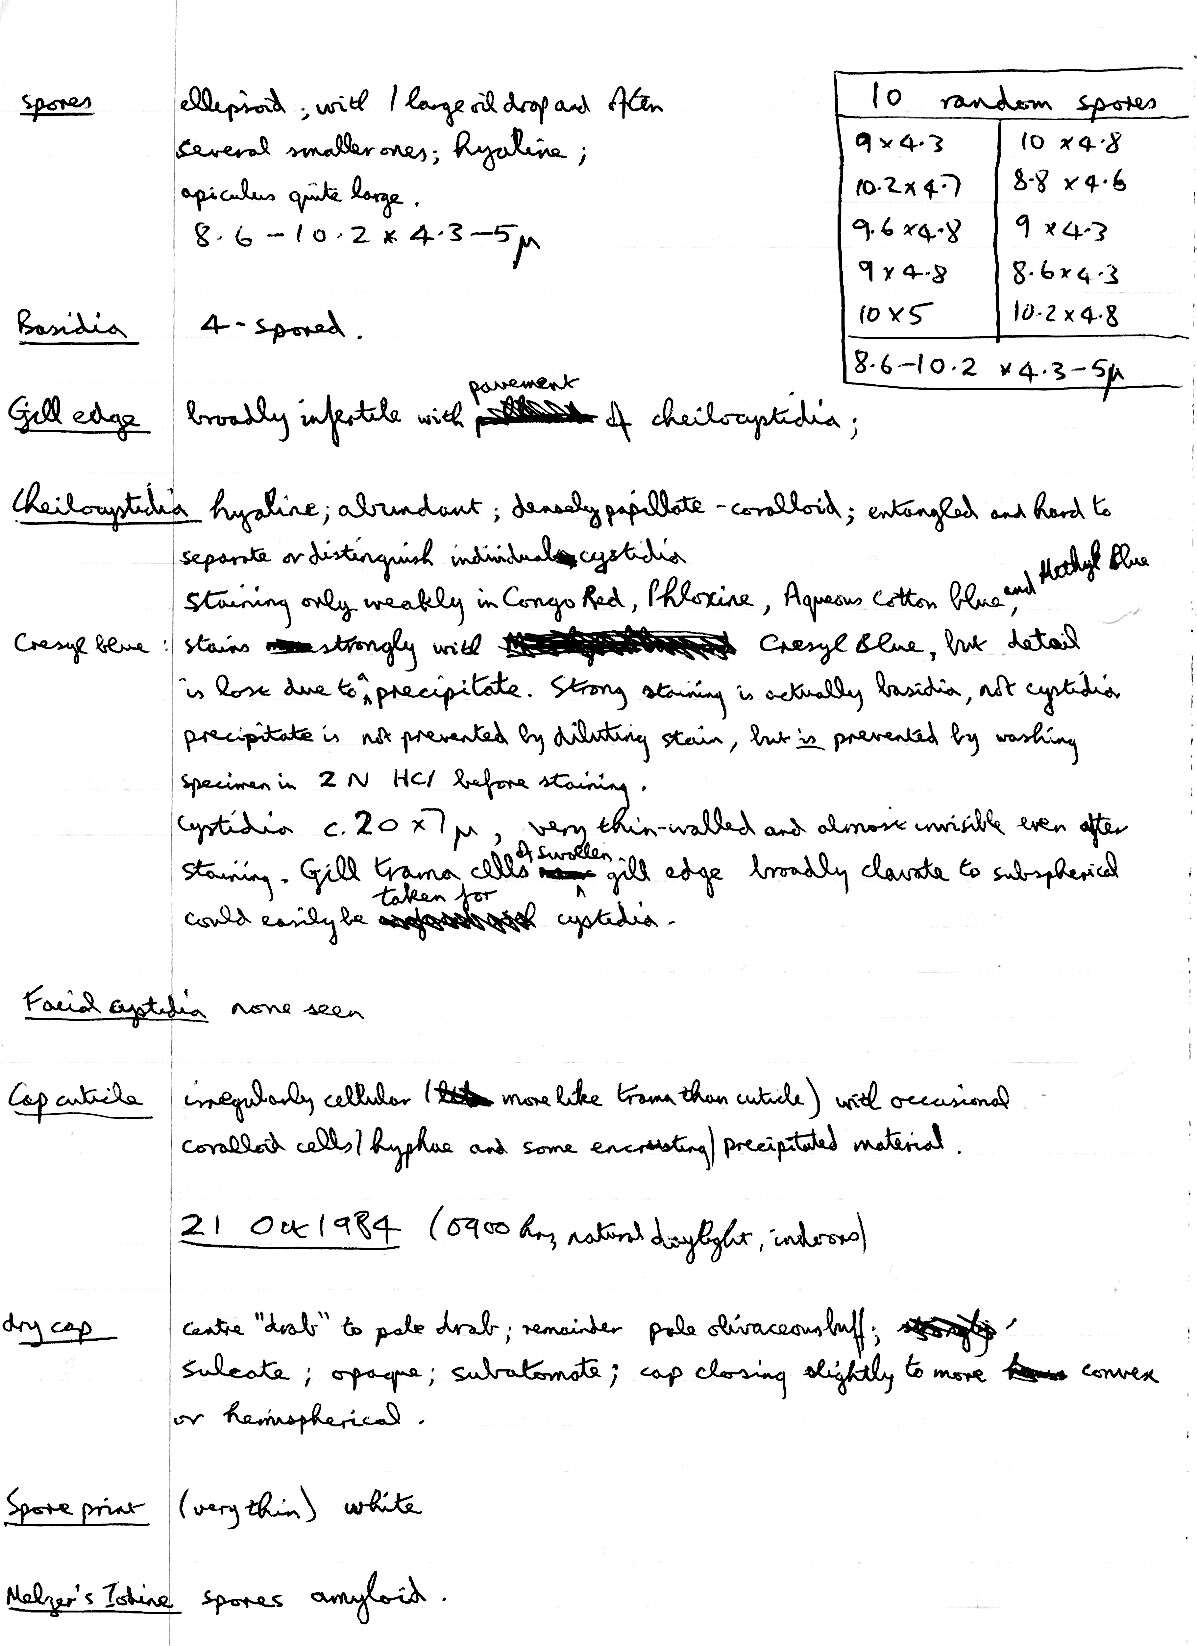 spores ellipsoid; with 1 large oil drop and often
several smaller ones; hyaline;
apiculus quite large.
8.6-10.2 x 4.3-5µ
10 random spores
9 x 4.3 10 x 4.8
10.2 x 4.7 8.8 x 4.6
9.6 x 4.8 9 x 4.3
9 x 4.8 8.6 x 4.3
10 x 5 10.2 x 4.8
8.6-10.2 x 4.3-5µ
Basidia 4-spored.
Gill edge broadly infertile with pavement of cheilocystidia;
Cheilocystidia hyaline; abundant; densely papillate-coralloid; entangled and hard to
separate or distinguish individual cystidia
Staining only weakly in Congo Red, Phloxine, Aqueous Cotton blue, and Methyl Blue
Cresyl blue: stains strongly with Cresyl Blue, but detail
is lost due to a precipitate. Strong staining is actually basidia, not cystidia
precipitate is not prevented by diluting stain, but is prevented by washing
specimen in 2 N HCl before staining.
Cystidia c. 20 x 7µ, very thin-walled and almost invisible even after
staining. Gill trama cells of swollen gill edge broadly clavate to subspherical
could easily be taken for cystidia.
Facial cystidia none seen
Cap cuticle irregularly cellular (more like trama than cuticle) with occasional
coralloid cells/hyphae and some encrusting/precipitated material.
21 Oct 1984 (0900 hrs, natural daylight, indoors)
dry cap centre "drab" to pale drab; remainder pale olivaceous buff;
sulcate; opaque; subatomate; cap closing slightly to more convex
or hemispherical.
Spore print (very thin) white
Melzer's Iodine spores amyloid.